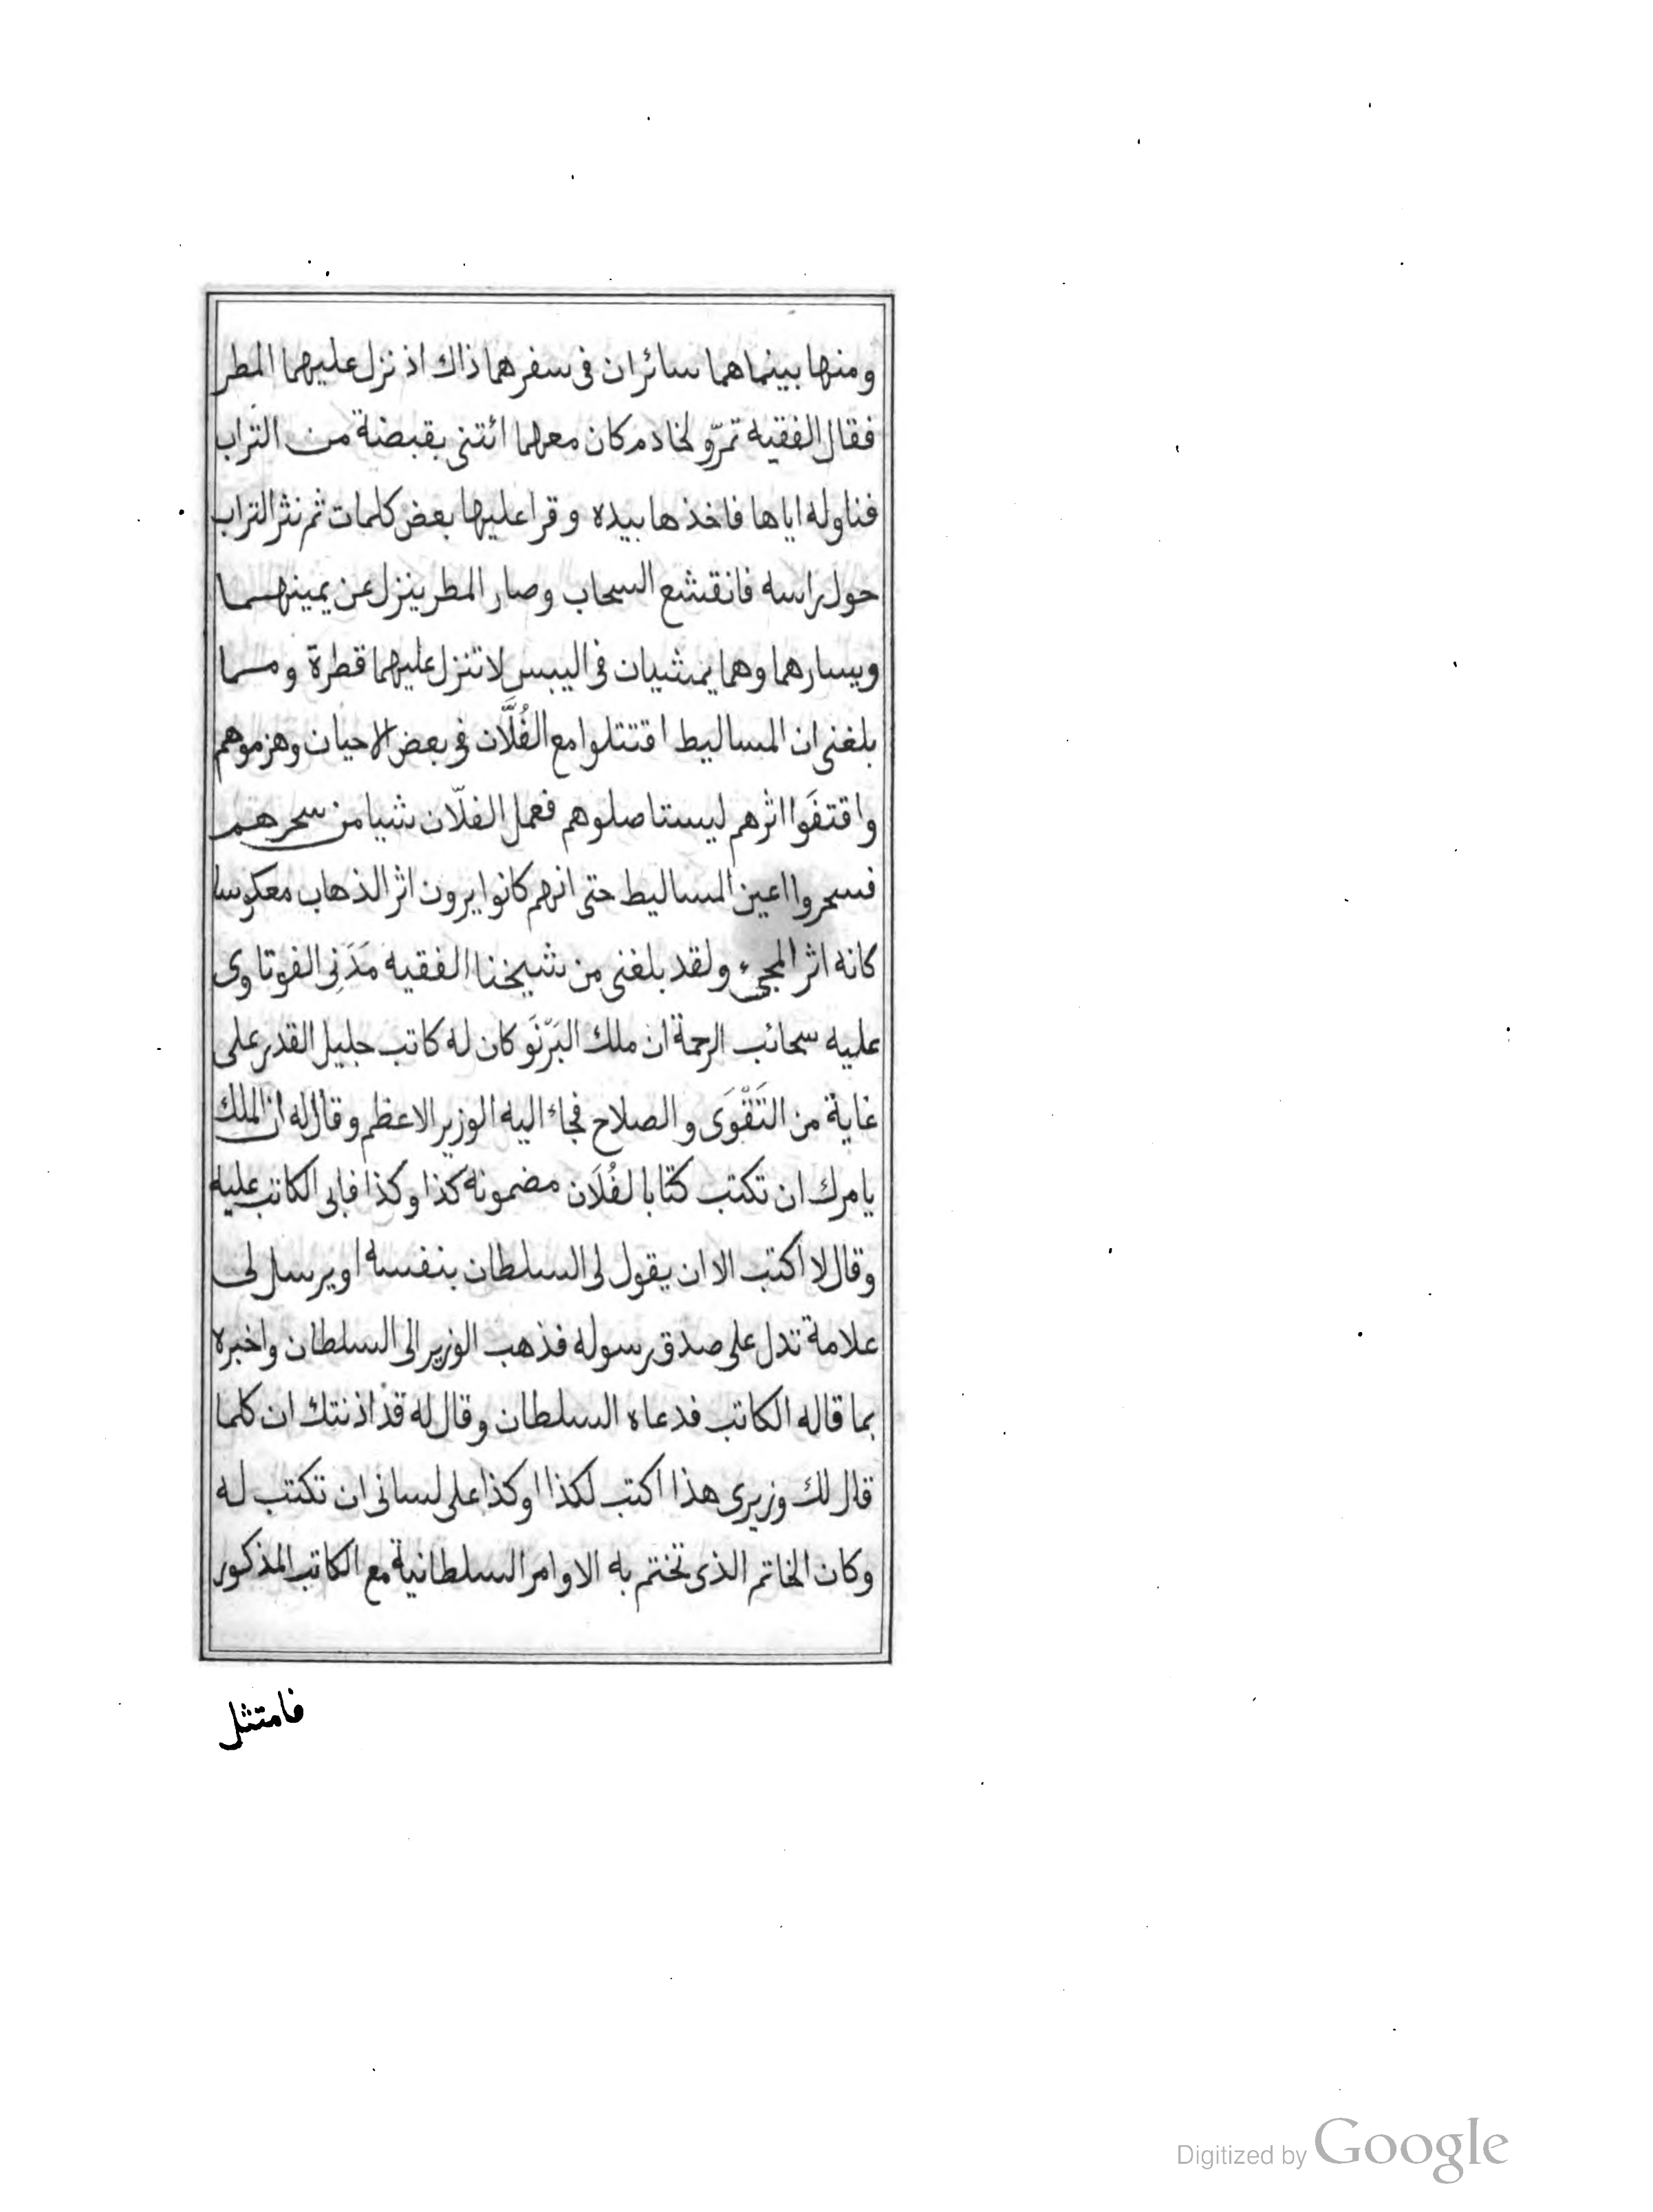 ومنها بينما هما سائران فى سفرهما ذاك اذ نزل عليهما المطر
فقال الفقيه تمرّو لخادم كان معهما ائتنى بقبضة من التراب
فناوله اياها فاخذها بيده وقرا عليها بعض كلمات ثم نثر التراب
حول راسه فانقشع السحاب وصار المطر ينزل عن يمينهما
ويسارهما وهما يمشيان فى اليبس لا تنزل عليهما قطرة ومما
بلغنى ان المساليط اقتتلوا مع الفُلَّان فى بعض الاحيان وهزموهم
واقتفَوا اثرهم ليستاصلوهم فعمل الفلّان شيا من سحرهم
فسحروا اعين المساليط حتى انهم كانوا يرون اثر الذهاب معكوسا
كانه اثر المجىء ولقد بلغنى من شيخنا الفقيه مَدَنِى الفوتاوى
عليه سحائب الرحمة ان ملك البَرْنَو كان له كاتب جليل القدر على
غاية من التَّقْوَى والصلاح فجاء اليه الوزير الاعظم وقال له ان الملك
يامرك ان تكتب كتابا لفُلَان مضمونه كذا وكذا فابى الكاتب عليه
وقال لا اكتب الا ان يقول لى السلطان بنفسه او يرسل لى
علامة تدل على صدق رسوله فذهب الوزير الى السلطان واخبره
بما قاله الكاتب فدعاه السلطان وقال له قد اذنتك ان كلما
قال لك وزيرى هذا اكتب لكذا اوكذا على لسانى ان تكتب له
وكان الخاتم الذى تختم به الاوامر السلطانية مع الكاتب المذكور
فامتثل
Digitized by Google